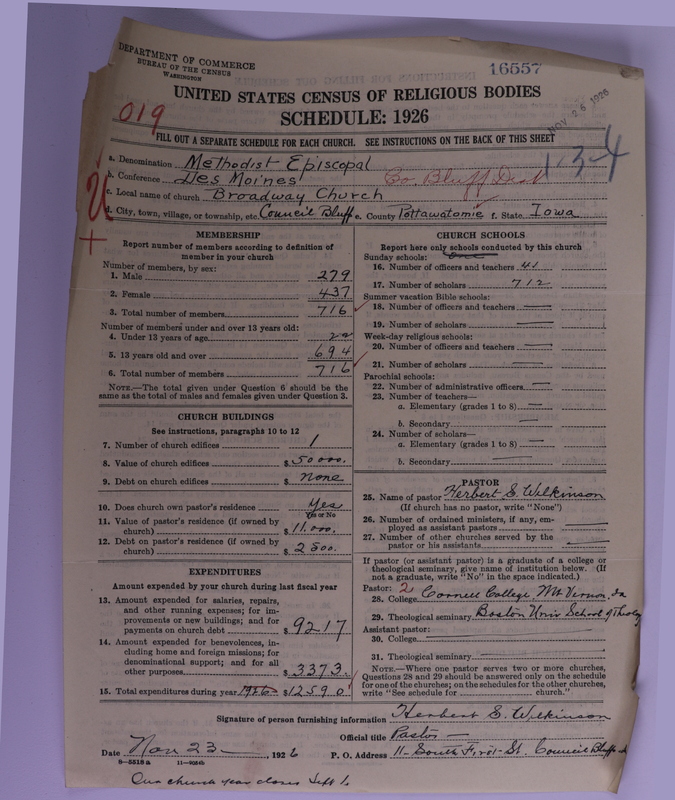 DEPARTMENT OF COMMERCE
BUREAU OF THE CENSUS
WASHINGTON
16557
UNITED STATES CENSUS OF RELIGIOUS BODIES
SCHEDULE: 1926
NOV 26 1926
019
FILL OUT A SEPARATE SCHEDULE FOR EACH CHURCH. SEE INSTRUCTIONS ON THE BACK OF THIS SHEET
a. Denomination Methodist Episcopal
b. Conference Des Moines Co. Bluff Dist
c. Local name of church Broadway Church
d. City, town, village, or township, etc. Council Bluff e. County Pottawatomie f. State Iowa
MEMBERSHIP
Report number of members according to definition of
member in your church
Number of members, by sex:
1. Male 279
2. Female 437
3. Total number of members 716
Number of members under and over 13 years old:
4. Under 13 years of age 22
5. 13 years old and over 694
6. Total number of members 716
NOTE.—The total given under Question 6 should be the
same as the total of males and females given under Question 3.
CHURCH BUILDINGS
See instructions, paragraphs 10 to 12
7. Number of church edifices 1
8. Value of church edifices $ 50000.
9. Debt on church edifices $ None
10. Does church own pastor's residence Yes
Yes or No
11. Value of pastor's residence (if owned by
church) $ 11,000.
12. Debt on pastor's residence (if owned by
church) $ 2500.
EXPENDITURES
Amount expended by your church during last fiscal year
13. Amount expended for salaries, repairs,
and other running expense; for im-
provements or new buildings; and for
payments on church debt $ 9217
14. Amount expended for benevolences, in-
cluding home and foreign missions; for
denominational support; and for all
other purposes $ 3373.
15. Total expenditures during year 1926 $ 12590
CHURCH SCHOOLS
Report here only schools conducted by this church
Sunday schools: One
16. Number of officers and teachers 41
17. Number of scholars 712
Summer vacation Bible schools:
18. Number of officers and teachers —
19. Number of scholars —
Week-day religious schools:
20. Number of officers and teachers —
21. Number of scholars —
Parochial schools:
22. Number of administrative officers —
23. Number of teachers—
a. Elementary (grades 1 to 8) —
b. Secondary —
24. Number of scholars—
a. Elementary (grades 1 to 8) —
b. Secondary —
PASTOR
25. Name of pastor Herbert S. Wilkinson
(If church has no pastor, write "None")
26. Number of ordained ministers, if any, em-
ployed as assistant pastors
27. Number of other churches served by the
pastor or his assistants —
If pastor (or assistant pastor) is a graduate of a college or
theological seminary, give name of institution below. (If
not a graduate, write "No" in the space indicated.)
Pastor: 2
28. College Cornell College Mt Vernon, Ia
29. Theological seminary Boston Univ School of Theology
Assistant pastor:
30. College
31. Theological seminary —
NOTE.—Where one pastor serves two or more churches,
Questions 28 and 29 should be answered only on the schedule
for one of the churches; on the schedules for the other churches,
write "See schedule for church."
Signature of person furnishing information Herbert S. Wilkinson
Official title Pastor —
Date Nov 23 —, 1926 P. O. Address 11- South First- St. Council Bluffs
8—5518a 11—9054b
Our church year closes Sept 1.